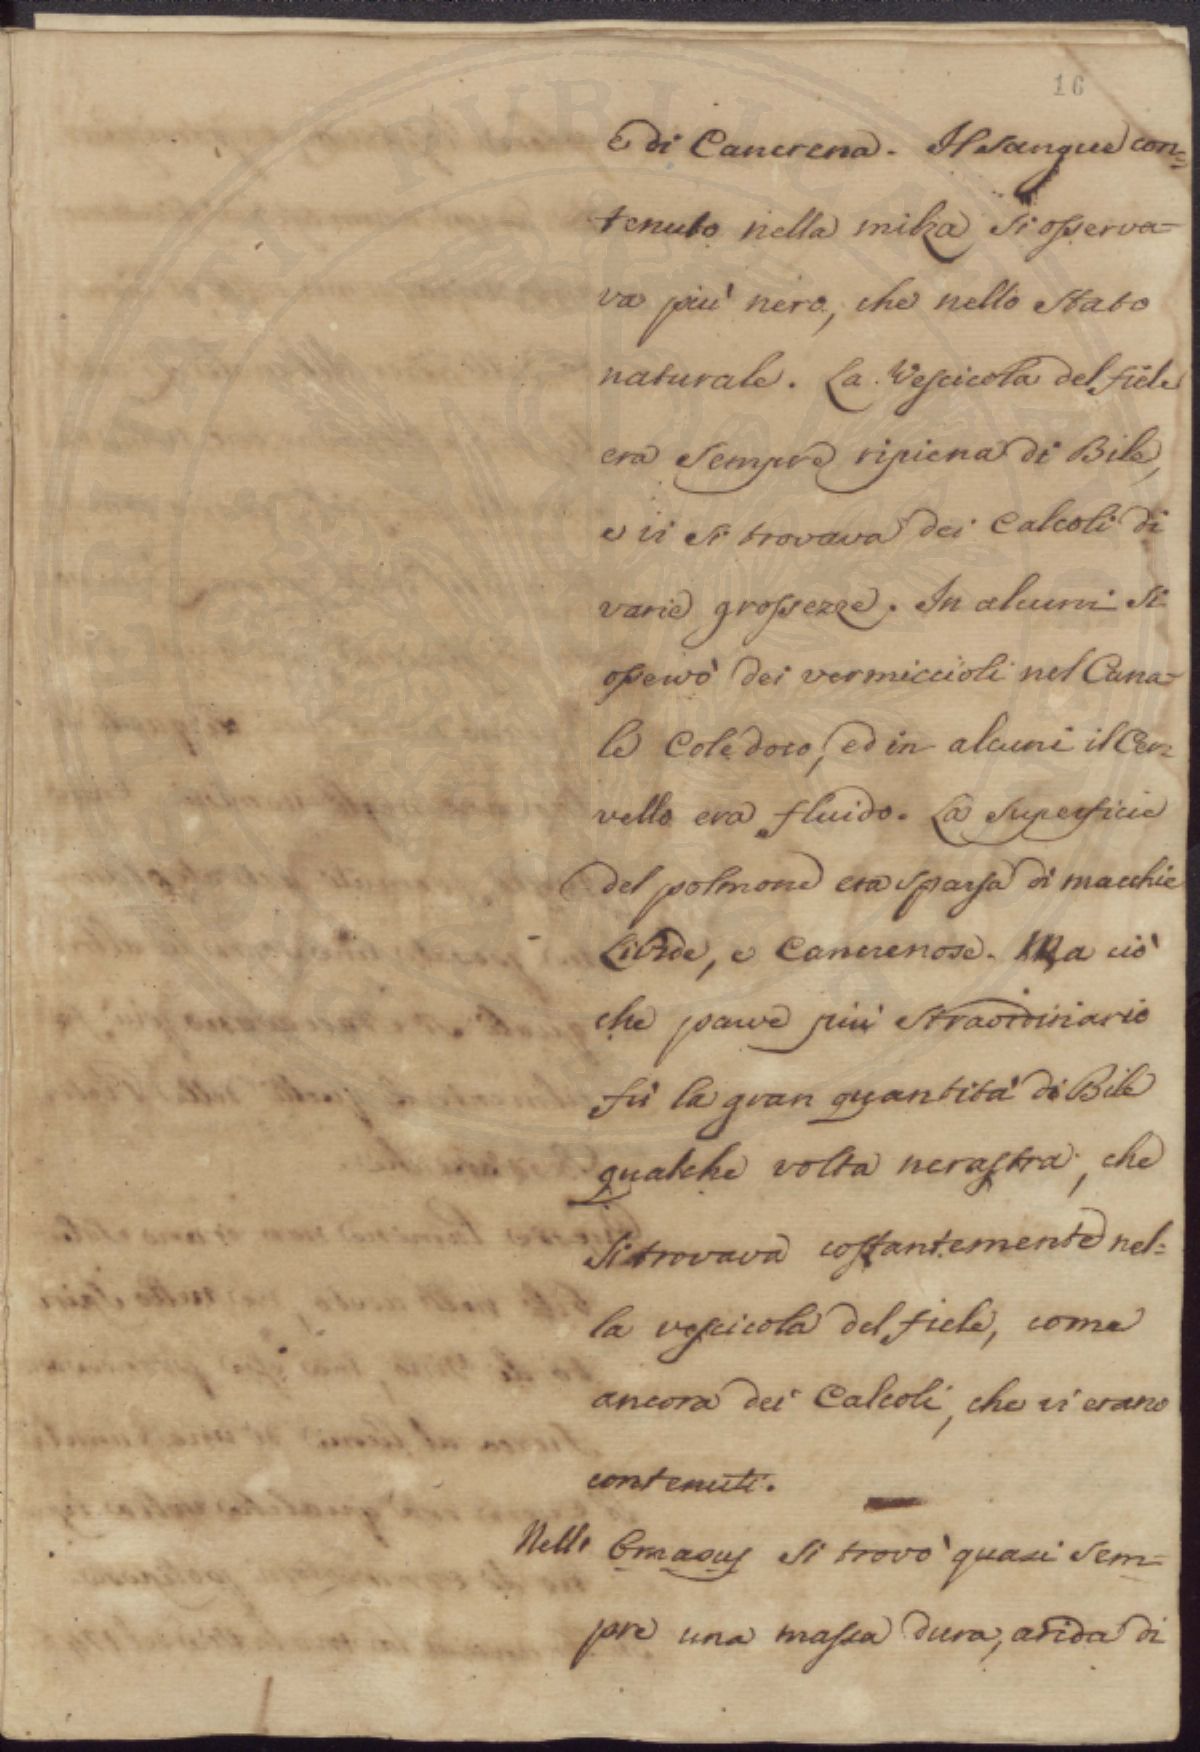 16
e di Cancrena. Il sangue con=
tenuto nella milza si osserva=
va più nero, che nello Stato
naturale. La Vescicola del fiele
era sempre ripiena di Bile,
e vi si trovava dei Calcoli di
varie grossezze. In alcuni si
osservò dei vermiccioli nel Cana=
le Coledoco, ed in alcuni il Cer=
vello era fluido. La superficie
del polmone era sparsa di macchie
Livide, e Cancrenose. Ma ciò
che parve più straordinario
fù la gran quantità di Bile
qualche volta nerastra, che
si trovava costantemente nel=
la vescicola del fiele, come
ancora dei Calcoli, che vi erano
contenuti.
Nell' Omasus si trovò quasi sem=
pre una massa dura, arida di